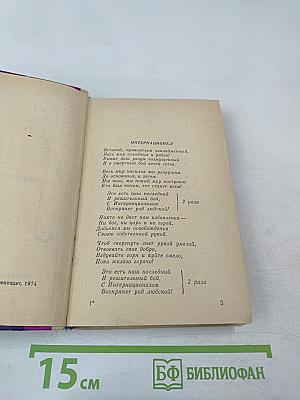 ИНТЕРНАЦИОНАЛ
Вставай, проклятьем заклейменный,
Весь мир голодных и рабов!
Кипит наш разум возмущенный
И в смертный бой вести готов.
Весь мир насилья мы разрушим
До основанья, а затем
Мы наш, мы новый мир построим:
Кто был ничем, тот станет всем!
Это есть наш последний
И решительный бой,
С Интернационалом
Воспрянет род людской!
2 раза
Никто не даст нам избавленья —
Ни бог, ни царь и не герой.
Добьемся мы освобожденья
Своею собственной рукой.
Чтоб свергнуть гнет рукой умелой,
Отвоевать свое добро,
Вздувайте горн и куйте смело,
Пока железо горячо!
Это есть наш последний
И решительный бой,
С Интернационалом
Воспрянет род людской!
2 раза
1*
3
1974
15 см
БФ БИБЛИОФАН